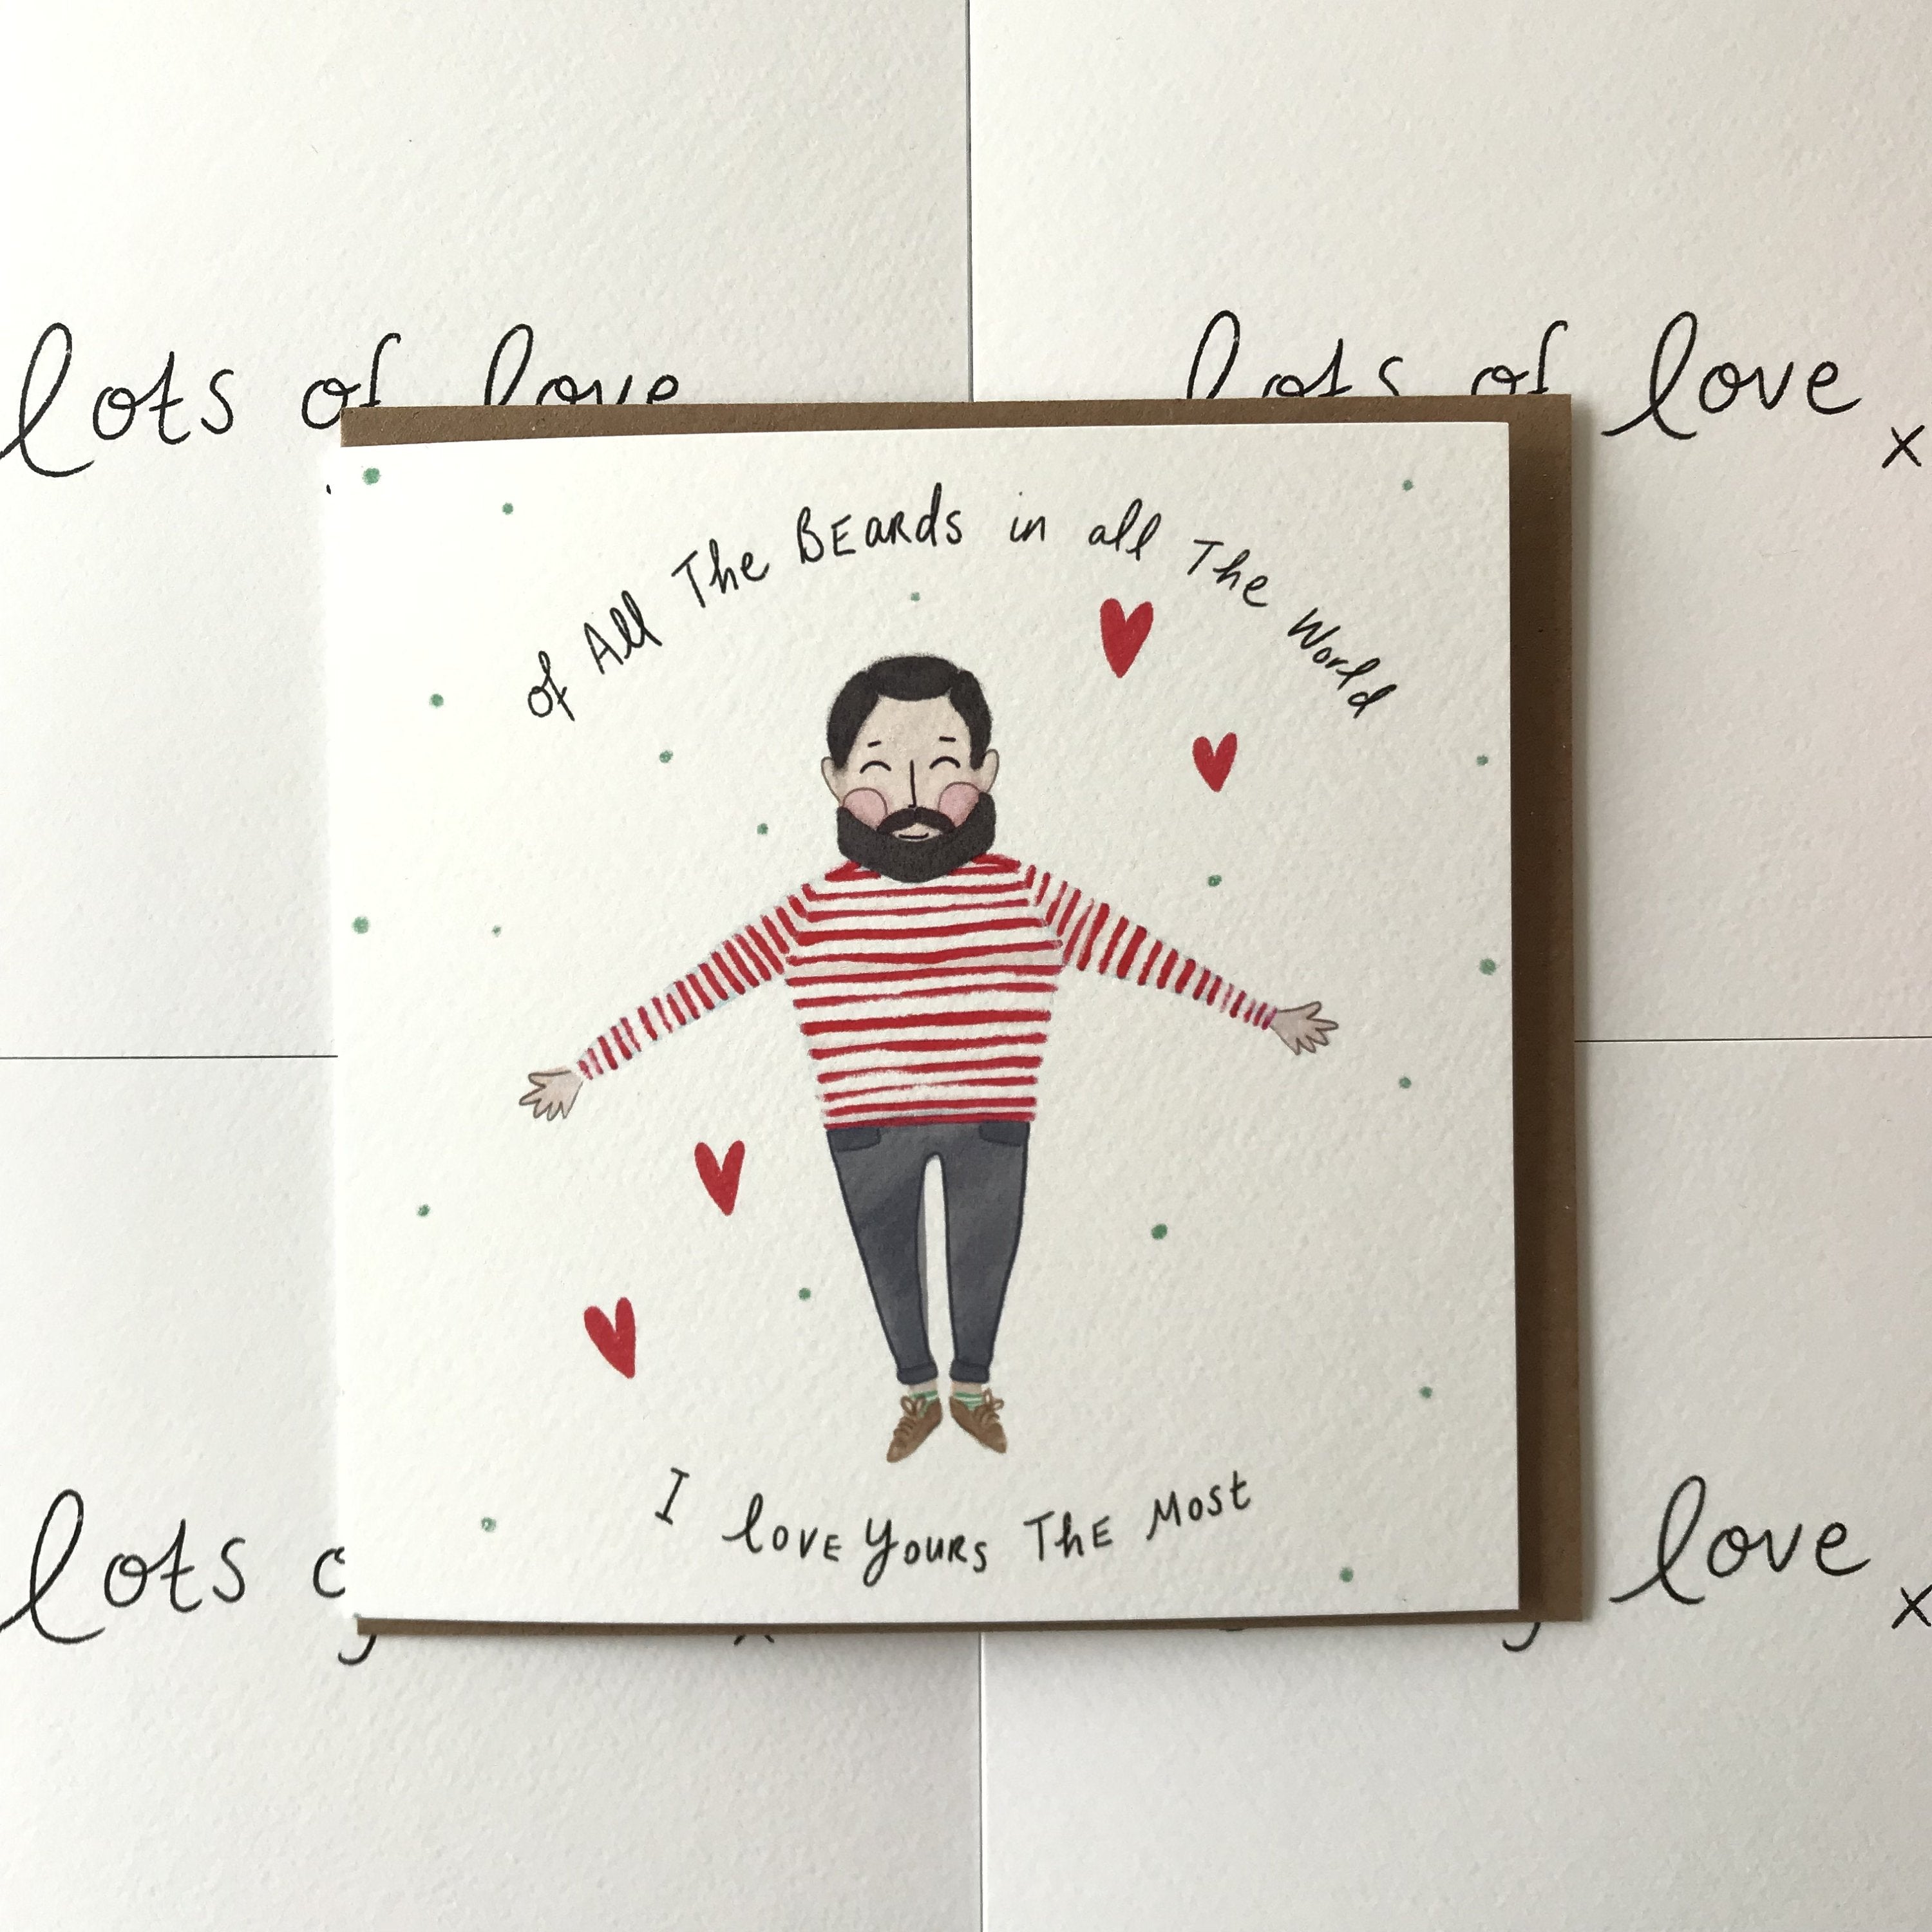 lots of love
lots of love x
of All The BEaRds in all The World
I lovE YouRs ThE Most
lots
love x